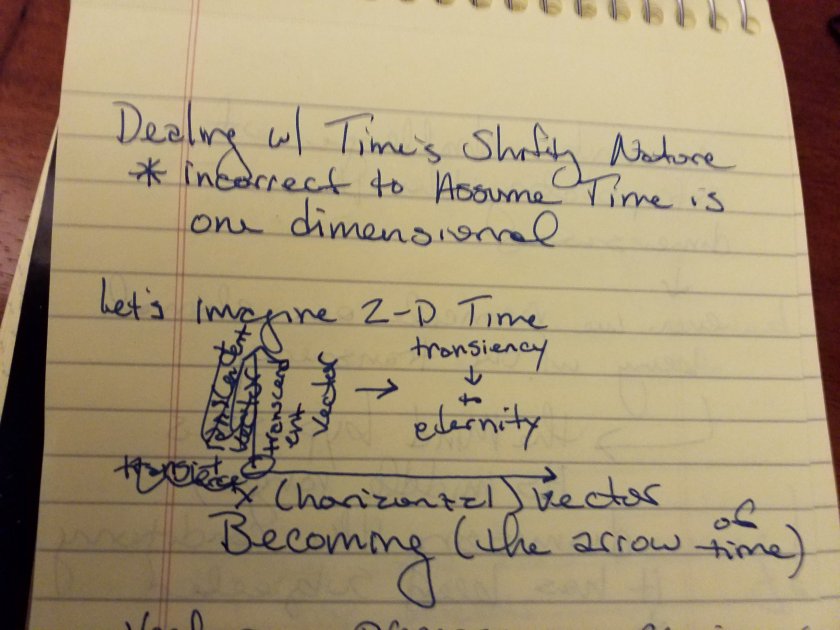 Dealing w/ Time's Shifty Nature
* incorrect to Assume Time is
one dimensional
Let's Imagine 2-D Time
transiency
to
eternity
transcend
ent
Vector
X (horizontal) vector
Becoming (the arrow of time)